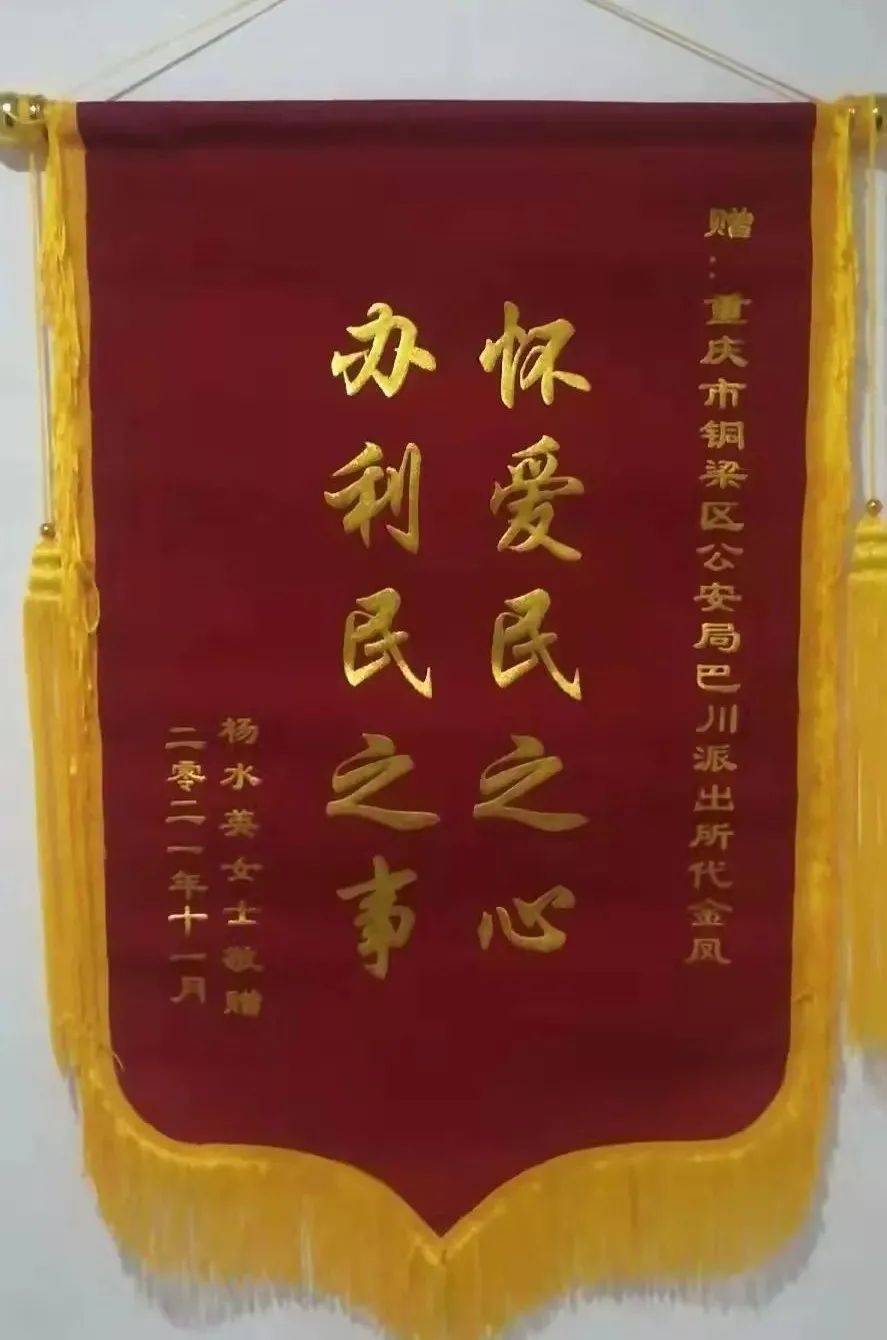 赠:重庆市铜梁区公安局巴川派出所代金凤
怀爱民之心
办利民之事
杨水英女士敬赠
二零二一年十一月